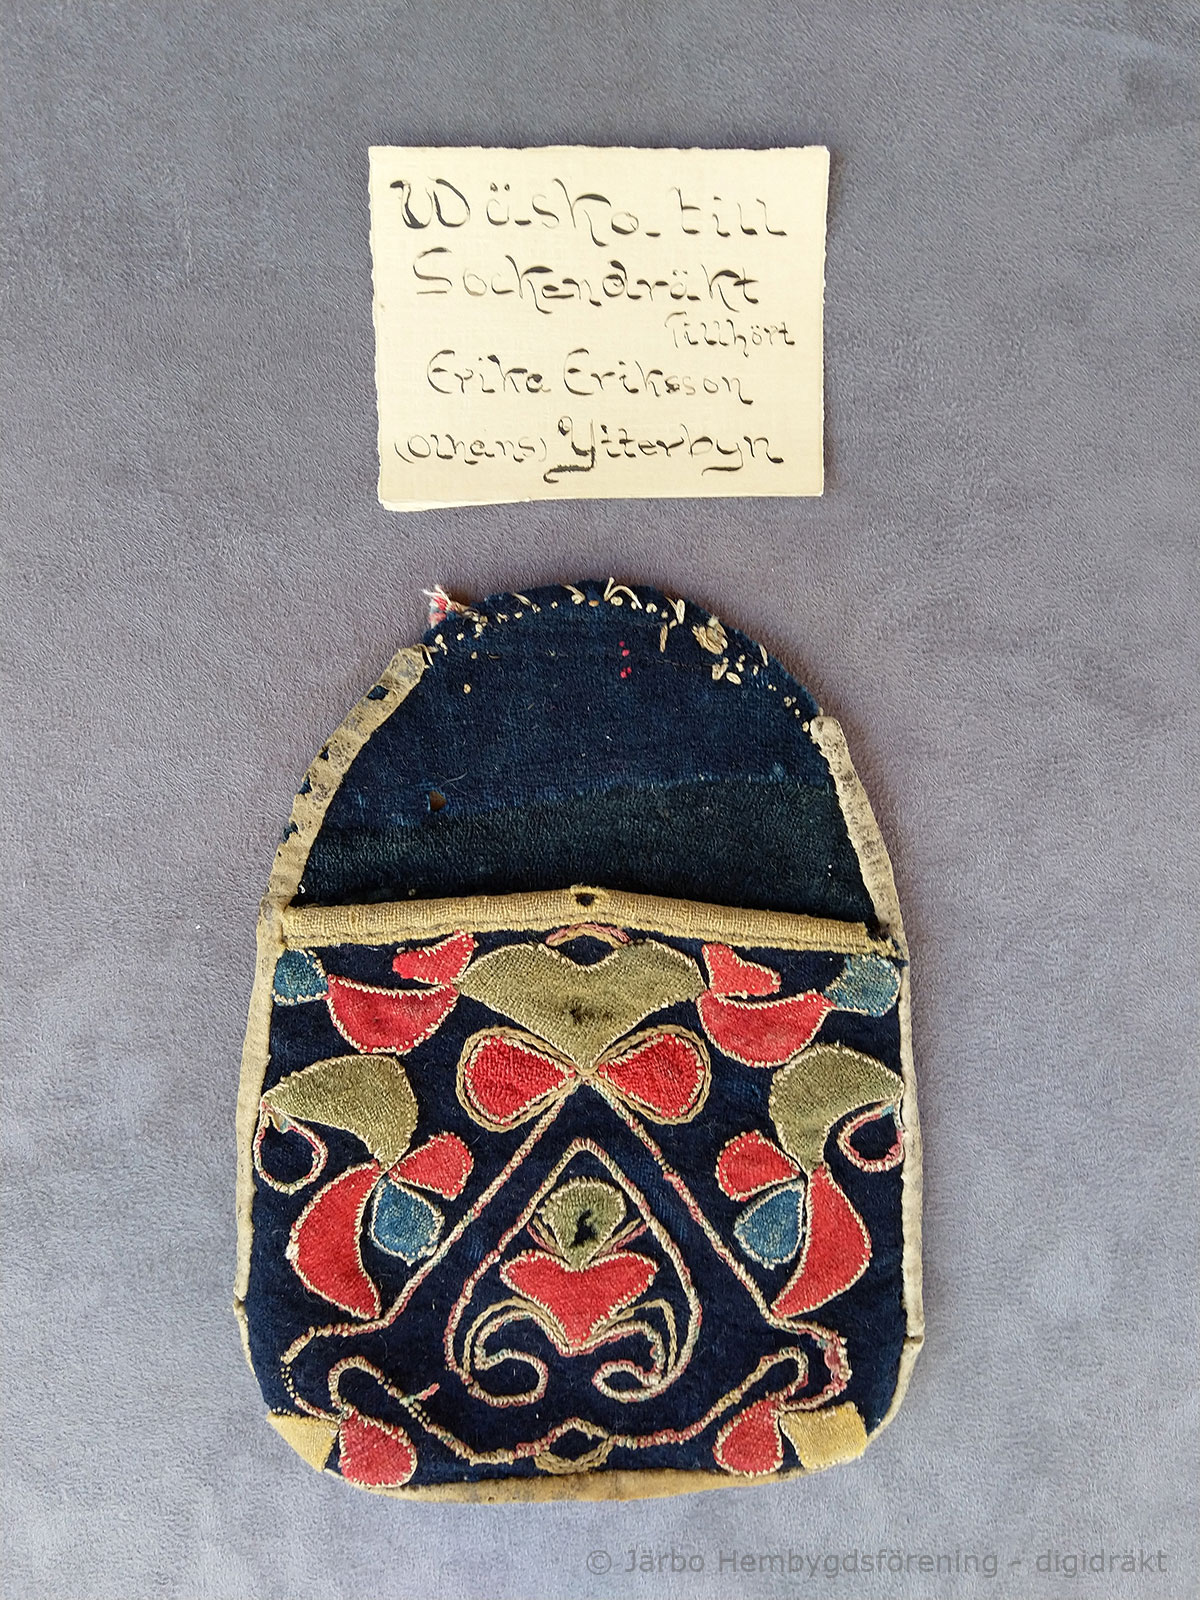 Wäska till
Sockendräkt
Tillhört
Erika Eriksson
(Olhans) Ytterbyn
© Järbo Hembygdsförening - digidräkt